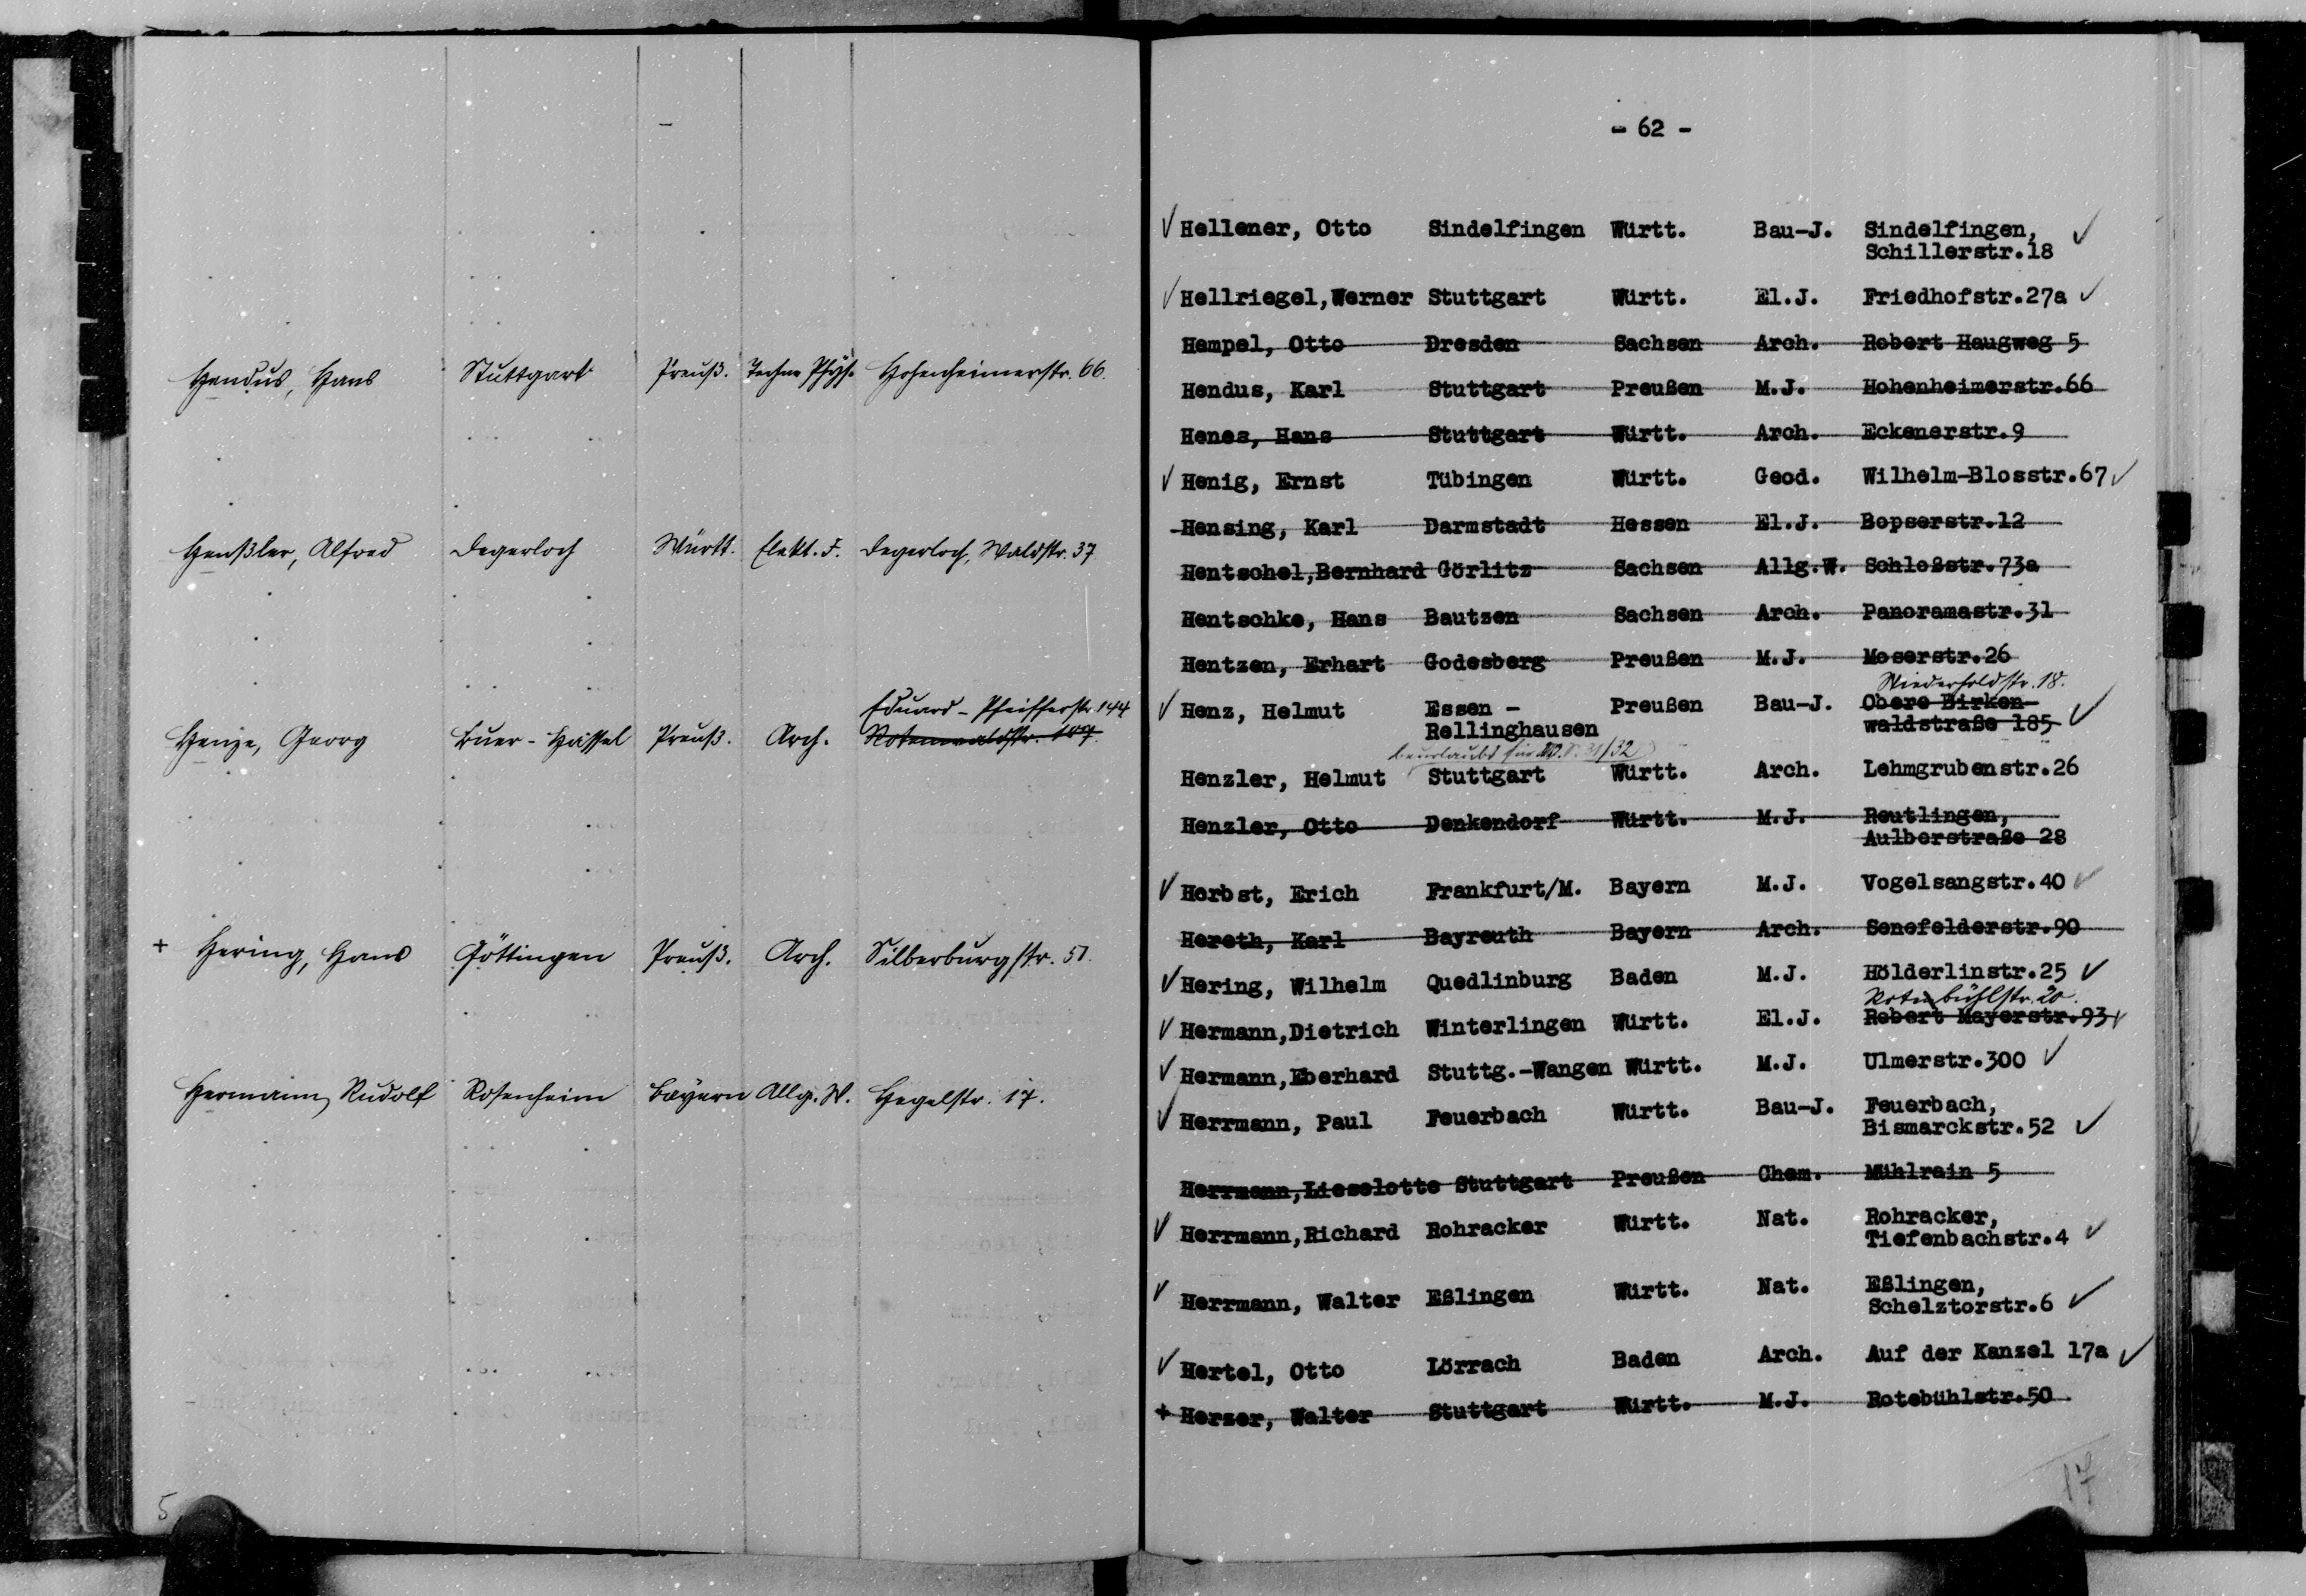 Hendus, Hans Stuttgart Preuß. Techn. Phys. Hohenheimerstr. 66.
Henßler, Alfred Degerloch Württ. Elekt. J. Degerloch, Waldstr. 37
Eduard-Pfeifferstr. 144
Henze, Georg Buer-Hassel Preuß. Arch. Rotenwaldstr. 107.
+ Hering, Hans Göttingen Preuß. Arch. Silberburgstr. 51.
Hermann, Rudolf Rosenheim Bayern Allg. W. Hegelstr. 17.
5
- 62 -
✓ Hellener, Otto Sindelfingen Württ. Bau-J. Sindelfingen, ✓
Schillerstr.18
✓ Hellriegel,Werner Stuttgart Württ. El.J. Friedhofstr.27a ✓
Hempel, Otto Dresden Sachsen Arch. Robert Haugweg 5
Hendus, Karl Stuttgart Preußen M.J. Hohenheimerstr.66
Henes, Hans Stuttgart Württ. Arch. Eckenerstr.9
✓ Henig, Ernst Tübingen Württ. Geod. Wilhelm-Blosstr.67 ✓
Hensing, Karl Darmstadt Hessen El.J. Bopserstr.12
Hentschel,Bernhard Görlitz Sachsen Allg.W. Schloßstr.73a
Hentschke, Hans Bautzen Sachsen Arch. Panoramastr.31
Hentzen, Erhart Godesberg Preußen M.J. Moserstr.26
Wiederholdstr. 18.
✓ Henz, Helmut Essen - Preußen Bau-J. Obere Birken-
Rellinghausen waldstraße 185 ✓
beurlaubt für W.S. 31/32
Henzler, Helmut Stuttgart Württ. Arch. Lehmgrubenstr.26
Henzler, Otto Denkendorf Württ. M.J. Reutlingen,
Aulberstraße 28
✓ Herbst, Erich Frankfurt/M. Bayern M.J. Vogelsangstr.40 ✓
Hereth, Karl Bayreuth Bayern Arch. Senefelderstr.90
✓ Hering, Wilhelm Quedlinburg Baden M.J. Hölderlinstr.25 ✓
Rotebühlstr. 20.
✓ Hermann,Dietrich Winterlingen Württ. El.J. Robert Mayerstr.93 ✓
✓ Hermann,Eberhard Stuttg.-Wangen Württ. M.J. Ulmerstr.300 ✓
✓ Herrmann, Paul Feuerbach Württ. Bau-J. Feuerbach,
Bismarckstr.52 ✓
Herrmann,Lieselotte Stuttgart Preußen Chem. Mühlrain 5
✓ Herrmann,Richard Rohracker Württ. Nat. Rohracker,
Tiefenbachstr.4 ✓
✓ Herrmann, Walter Eßlingen Württ. Nat. Eßlingen,
Schelztorstr.6 ✓
✓ Hertel, Otto Lörrach Baden Arch. Auf der Kanzel 17a ✓
+ Herzer, Walter Stuttgart Württ. M.J. Rotebühlstr.50
17